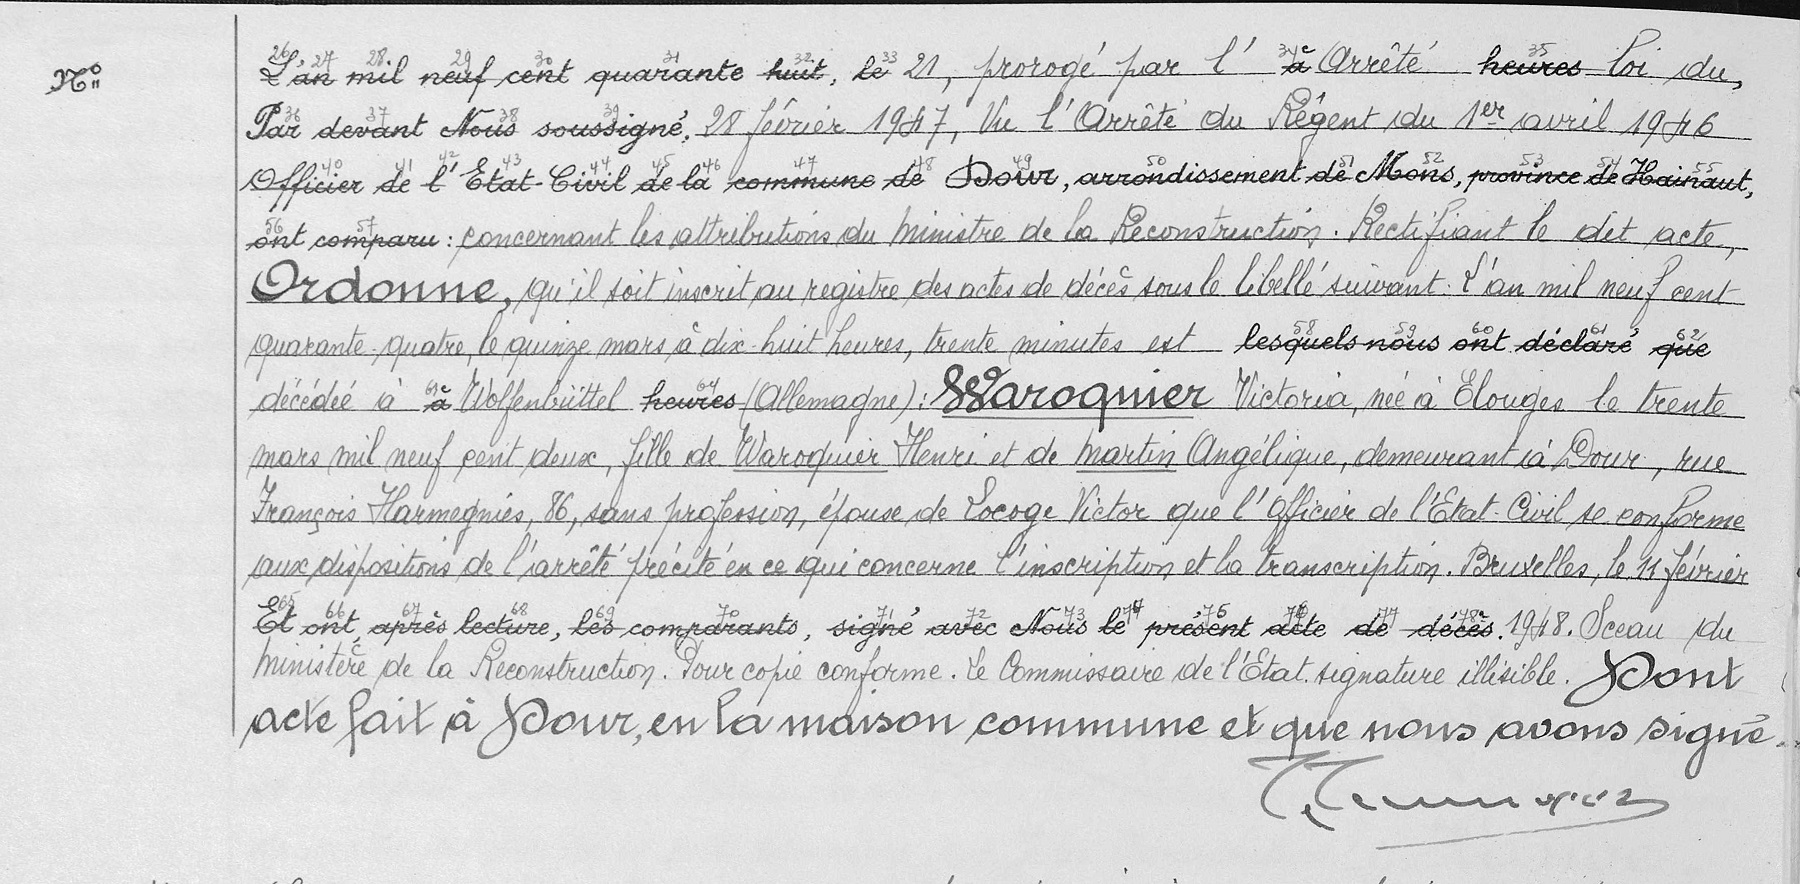 N°
L'an mil neuf cent quarante huit, le 21, prorogé par l' à Arrêté heures Loi du,
Par devant Nous soussigné, 28 février 1947, Vu l'Arrêté du Régent du 1er avril 1946
Officier de l'Etat-Civil de la commune de Dour, arrondissement de Mons, province de Hainaut,
ont comparu : concernant les attributions du Ministre de la Reconstruction. Rectifiant le dit acte,
Ordonne, qu'il soit inscrit au registre des actes de décès sous le libellé suivant. L'an mil neuf cent
quarante-quatre, le quinze mars à dix-huit heures, trente minutes est lesquels nous ont déclaré que
décédée à à Wolfenbüttel heures (Allemagne) : Waroquier Victoria, née à Elouges le trente
mars mil neuf cent deux, fille de Waroquier Henri et de Martin Angélique, demeurant à Dour, rue
François Harmegnies, 86, sans profession, épouse de Locoge Victor que l'Officier de l'Etat-Civil se conforme
aux dispositions de l'arrêté précité en ce qui concerne l'inscription et la transcription. Bruxelles, le 11 février
Et ont, après lecture, les comparants, signé avec Nous le présent acte de décès. 1948. Sceau du
Ministère de la Reconstruction. Pour copie conforme. Le Commissaire de l'Etat. signature illisible. Dont
acte fait à Dour, en la maison commune et que nous avons signé.